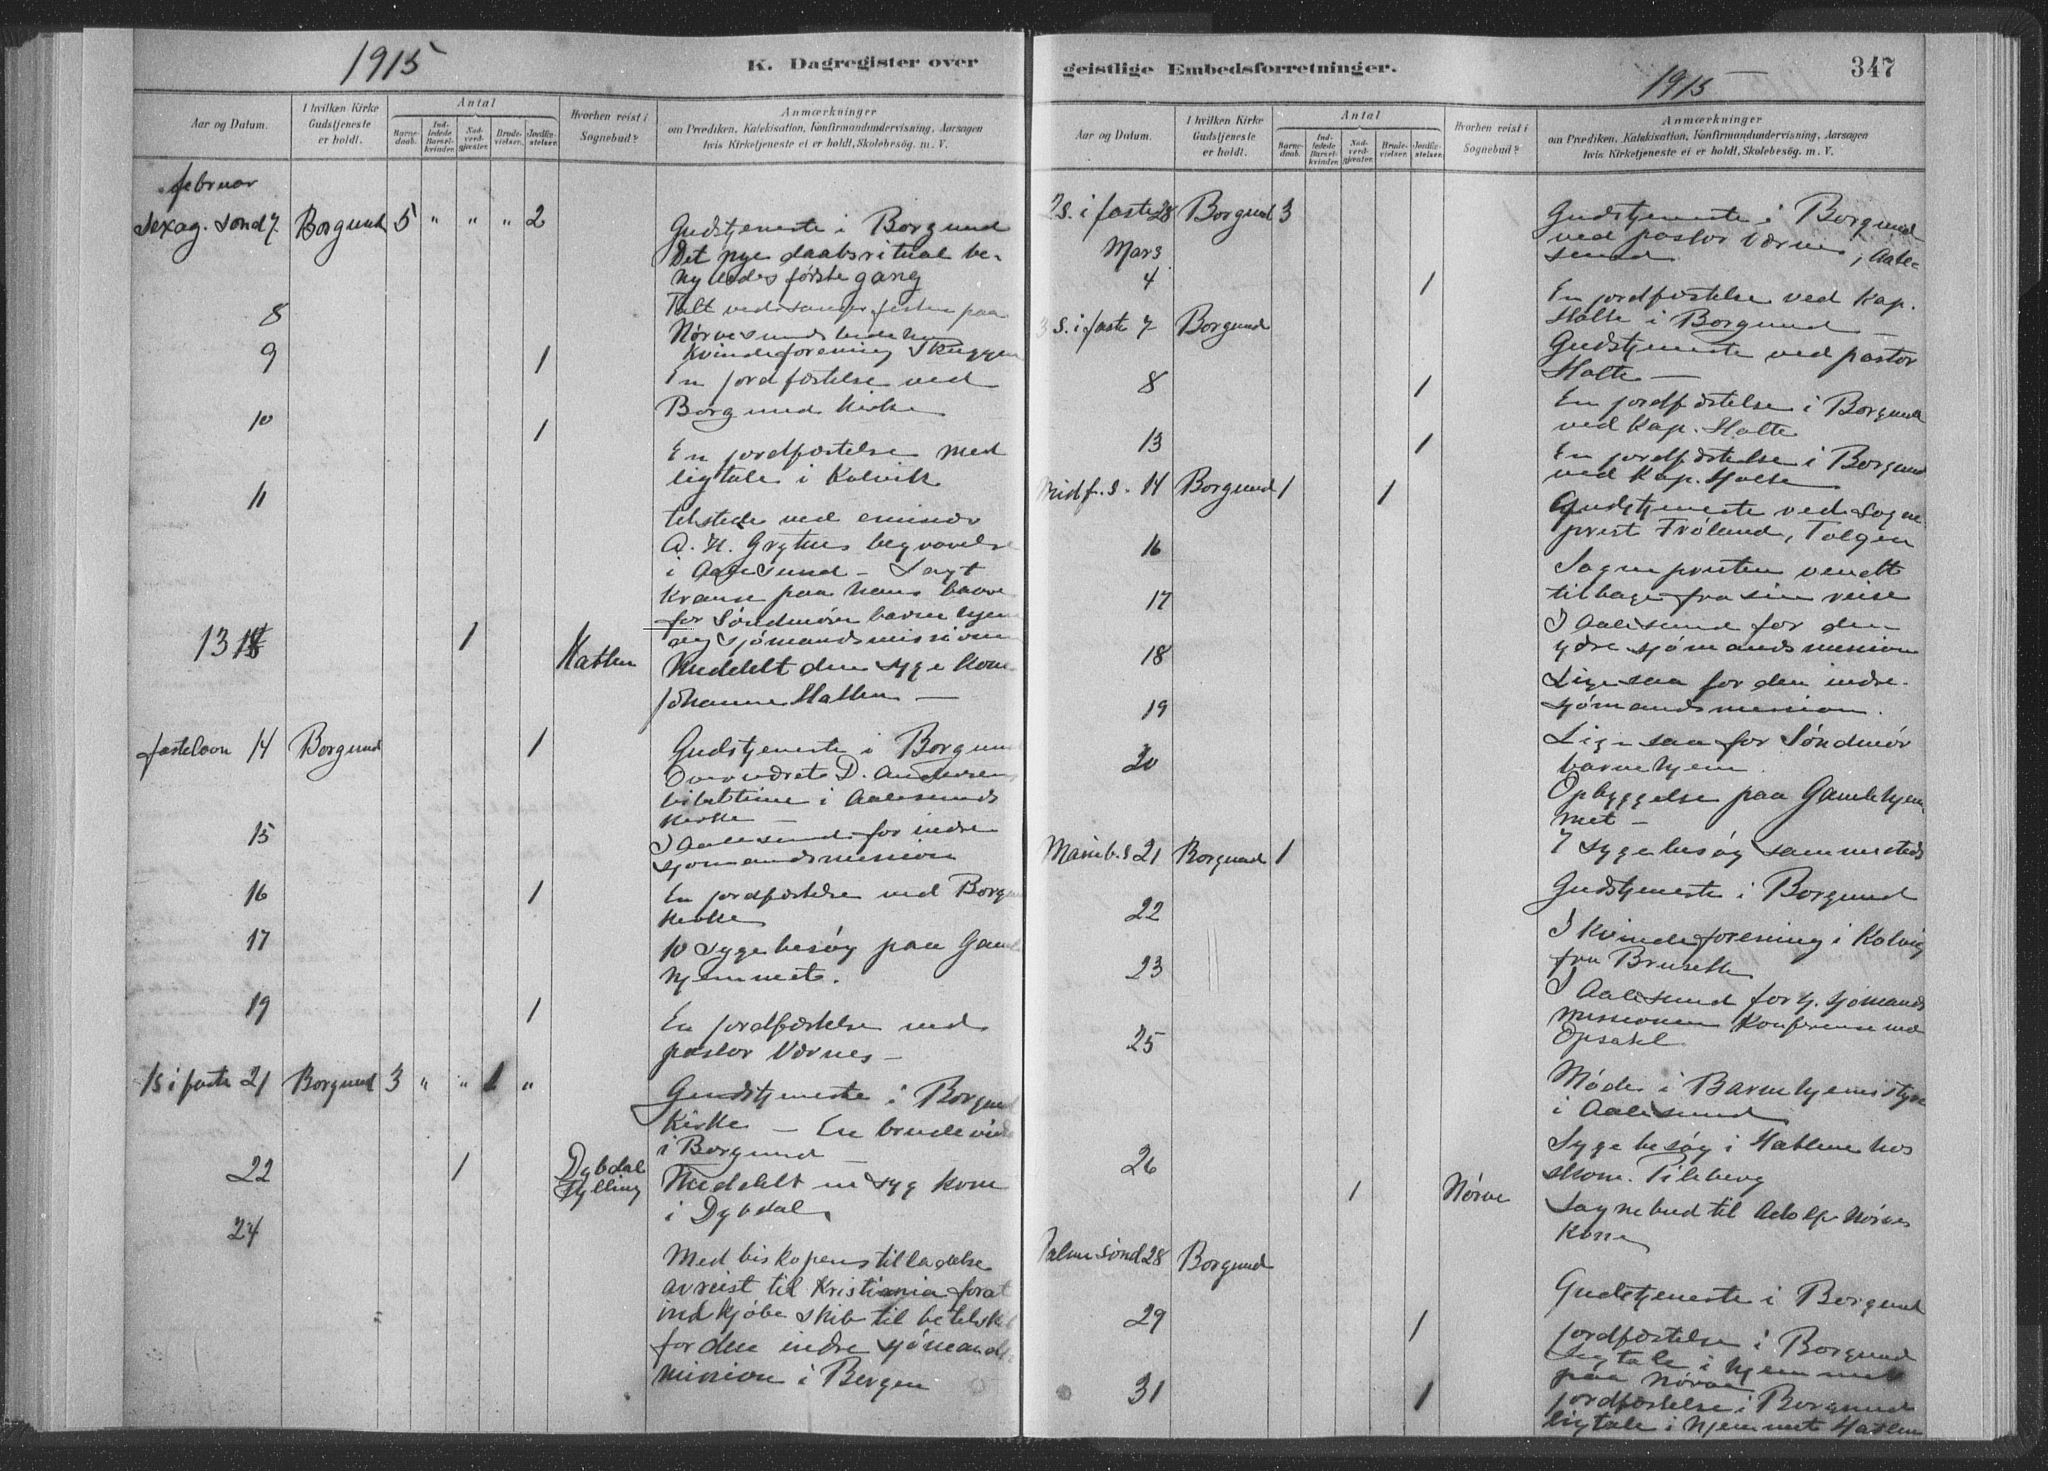 1915
K. Dagregister over
Aar og Datum.
I hvilken Kirke Gudstjeneste er holdt.
Antal
Barnedaab.
Indledede Barselkvinder.
Nadverdgjæster.
Brudevielser.
Jordfæstelser.
Hvorhen reist i Sognebud?
Anmærkninger
om Prædiken, Katekisation, Konfirmandundervisning, Aarsagen
hvis Kirketjeneste ei er holdt, Skolebesøg. m. V.
februar
Sexag. Sønd 7. Borgund 5 " " " 2
Gudstjeneste i Borgund
Det nye daabsritual be-
nyttedes første gang
8
Talt ved sangerfesten paa
Nørvesunds bedehus
9 1
Kvindeforening Skuggen
En jordfæstelse ved
Borgund Kirke
10 1
En jordfæstelse med
ligtale i Kalvik
11
tilstede ved emissær
A. H. Grytnes begravelse
i Aalesund – Lagt
Krans paa hans baare
for Søndmøre barnehjem
og sjømandsmissionen
13 1 Hatlen
Meddelt den syge kone
Johanne Hatlen –
fastelavn 14 Borgund 1
Gudstjeneste i Borgund
Overværet D. Andersens
bibeltime i Aalesunds
Kirke –
15
I Aalesund for indre
sjømandsmission
16 1
En jordfæstelse ved Borgund
Kirke
17
10 Sygebesøg paa Gamle
hjemmet.
19 1
En jordfæstelse ved
pastor Værnes –
1 S i faste 21 Borgund 3 " " 1 "
Gudstjeneste i Borgund
Kirke – En brudevielse
i Borgund
22 1 Dybdal
Hylling
Meddelt en syg kone
i Dybdal
24
Med biskopens tilladelse
avreist til Kristiania forat
indkjøbe skib til betelskib
for den indre sjømands
mission i Bergen
geistlige Embedsforretninger.
1915
347
Aar og Datum.
I hvilken Kirke Gudstjeneste er holdt.
Antal
Barnedaab.
Indledede Barselkvinder.
Nadverdgjæster.
Brudevielser.
Jordfæstelser.
Hvorhen reist i Sognebud?
Anmærkninger
om Prædiken, Katekisation, Konfirmandundervisning, Aarsagen
hvis Kirketjeneste ei er holdt, Skolebesøg. m. V.
2 S. i faste 28 Borgund 3
Gudstjeneste i Borgund
ved pastor Værnes, Aale-
sund
Mars
4 1
En jordfæstelse ved Kap.
Holte i Borgund –
3 S. i faste 7 Borgund
Gudstjeneste ved pastor
Holte –
8 1
En jordfæstelse i Borgund
ved Kap. Holte
13 1
En jordfæstelse i Borgund
ved Kap. Holte
Midf. S. 14 Borgund 1 1
Gudstjeneste ved Sogne
prest Frøland, Tolgen
16
Sognepresten vendt
tilbage fra sin reise
17
I Aalesund for den
ydre sjømandsmission
18
Ligesaa for den indre
sjømandsmission.
19
Ligesaa for Søndmør
barnehjem.
20
Opbyggelse paa Gamlehjem-
met –
7 sygebesøg sammesteds
Maria b. S 21 Borgund 1
Gudstjeneste i Borgund
22
I Kvindeforening i Kalvig
fru Brusetth
23
I Aalesund for i. sjømands
missionen Konferense med
Opsahl
25
Møde i Barnehjemsstyre
i Aalesund
26
Sygebesøg i Hatlene hos
skom. Tileberg
1 Nørve
Sognebud til Adolf Nørves
Kone
Palmesønd 28 Borgund
Gudstjeneste i Borgund
29 1
Jordfæstelse i Borgund
Ligtale i hjemmet
paa Nørve
31 1
Jordfæstelse i Borgund
Ligtale i hjemmet Hatlen